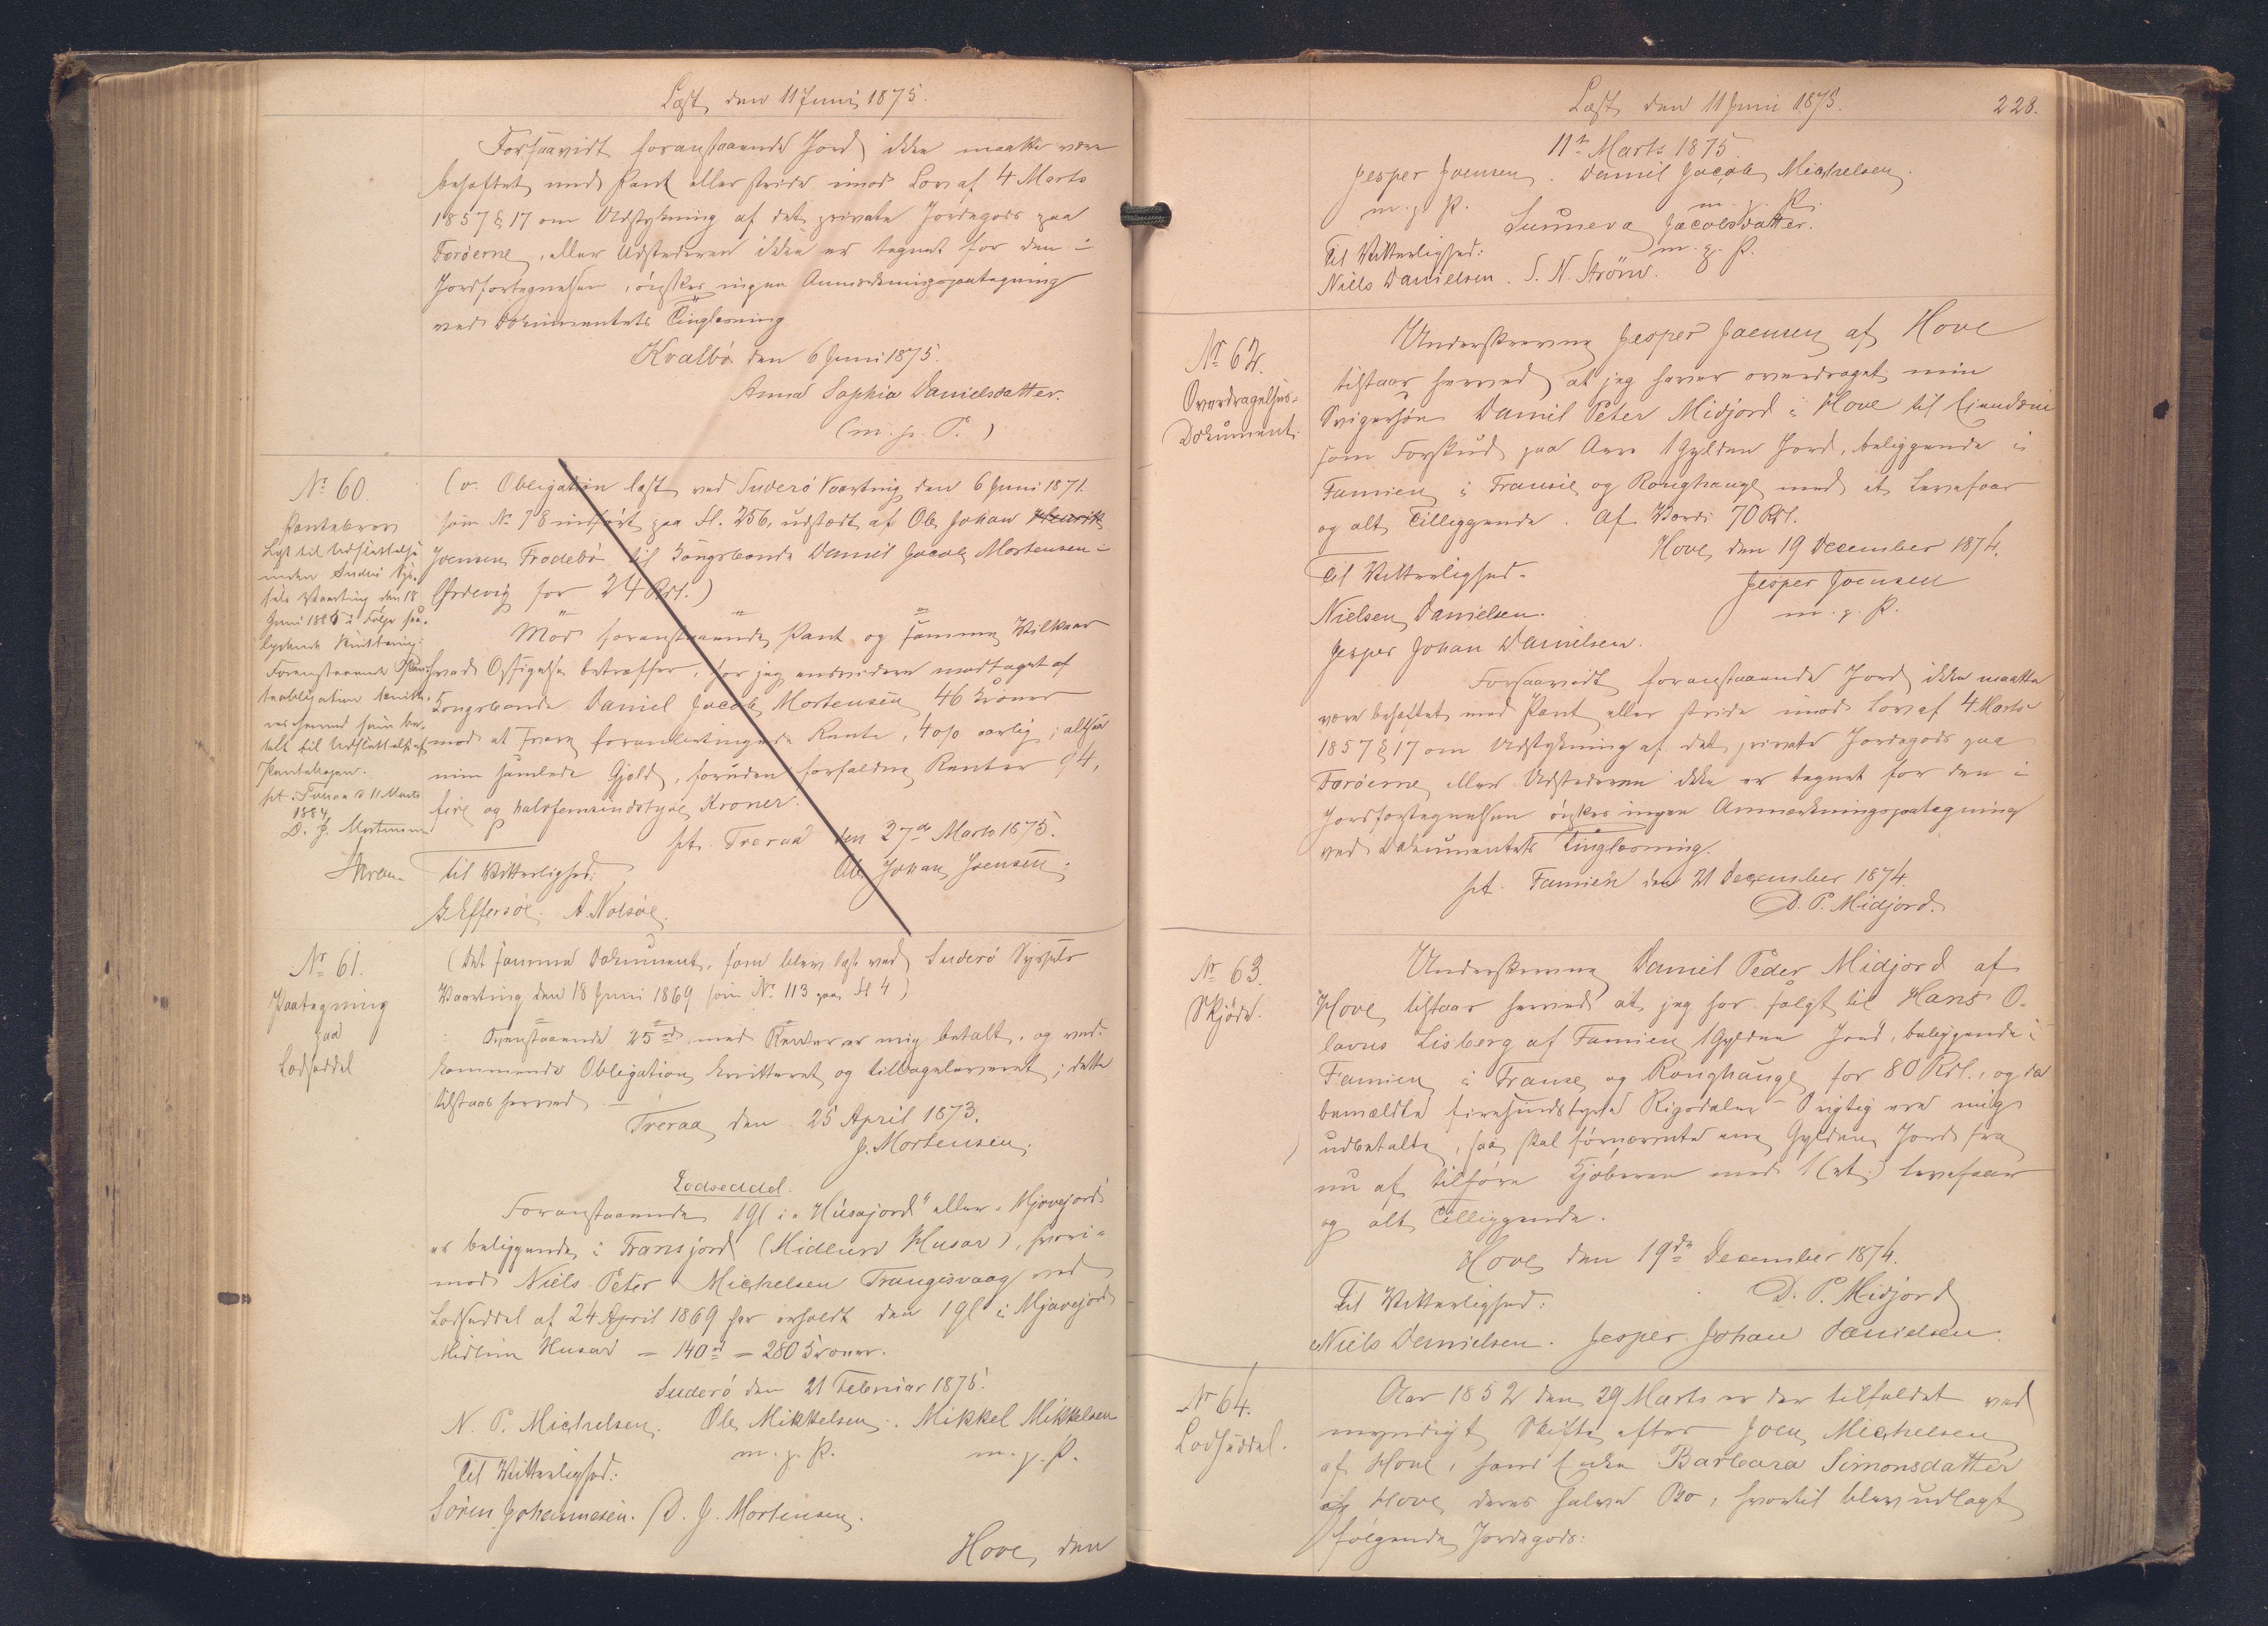 Læst den 11 Juni 1875.
Forsaavidt foranstaaende Jord ikke maatte være
behæftet med Pant eller stride imod Lov af 4 Marts
1857 § 17 om Udstykning af det private Jordegods paa
Færöerne, eller Udstederen ikke er tegnet for den i
Jordfortegnelsen, önskes ingen Anmærkningspaategning
ved Dokumentets Tinglæsning
Kvalbö den 6 Juni 1875.
Anna Sophia Danielsdatter.
(m. p. P.)
No 60.
Pantebrev
Lyst til Udslettelse
under Suderö Sys-
sels Vaarting den 18
Juni 188 i Følge saa-
lydende Kvittering:
Foranstaaende Pan-
teobligation kvitte-
res herved som be-
talt til Udslettelse af
Pantebogen.
pt. Tveraa d 11 Marts
1884
D. J. Mortensen
(v. Obligation læst ved Suderö Vaarting den 6 Juni 1871
som No 78 indført paa Fl. 256, udstedt af Ole Johan Henrik
Joensen Frodebö til Kongsbonde Daniel Jacob Mortensen i
Ördevig for 24 Rdl.)
Mod foranstaaende Pant og samme Vilkaar
hvad Opsigelse betræffer, har jeg endvidere modtaget af
Kongsbonde Daniel Jacob Mortensen 46 Kroner
mod at svare foranbetingede Rente, 4 o/o aarlig; altsaa
min samlede Gjeld, foruden forfaldne Renter 94,
fire og halvfemsindstyve Kroner.
pt. Tveraa den 27de Marts 1875.
Til Vitterlighed: Ole Johan Joensen.
E Effersöe. A. Nolsöe.
No 61.
Paategning
paa
Lodseddel
(Det samme Dokument, som blev læst ved Suderö Syssels
Vaarting den 18 Juni 1869 som No. 113 paa Fl 4)
Ovenstaaende 25 rd med Renter er mig betalt, og ved-
kommende Obligation kvitteret og tilbageleveret; dette
tilstaas herved
Tveraa den 25 April 1873.
J. Mortensen.
Lodseddel.
Foranstaaende 1 gl i "Húsajord" eller "Mjovejord"
er beliggende i Fransjord (Midlum Husar), hvori-
mod Niels Peter Michelsen Trangisvaag ved
Lodseddel af 24 April 1869 har erholdt den 1 gl i Mjavejord
Midlum Husar = 140 rd = 280 Kroner.
Suderö den 21 Februar 1875.
N. P. Michelsen. Ole Mikkelsen. Mikkel Mikkelsen
m. p. P. m. p. P.
Til Vitterlighed:
Sören Johannesen. D. J. Mortensen.
Hove, den
Læst den 11 Juni 1875. 228.
11te Marts 1875.
Jesper Joensen. Daniel Jacob Michelsen.
m. p. P. m. p. P.
Sunneva Jacobsdatter.
Til Vitterlighed: m. p. P.
Niels Danielsen. S. N. Ström.
No 62.
Overdragelses-
Dokument.
Underskrevne Jesper Joensen af Hove
tilstaar herved, at jeg haver overdraget min
Svigersön Daniel Peter Midjord i Hove til Eiendom
som Forskud paa Arv 1 Gylden Jord, beliggende i
Famien i Transie og Ronghauge med et Levefaar
og alt Tilliggende. Af Værdi 70 Rdl.
Hove, den 19 December 1874.
Til Vitterlighed. Jesper Joensen
Nielsen Danielsen. m. p. P.
Jesper Johan Danielsen.
Forsaavidt foranstaaende Jord ikke maatte
være behæftet med Pant eller stride imod Lov af 4 Marts
1857 § 17 om Udstykning af det private Jordegods paa
Færöerne eller Udstederen ikke er tegnet for den i
Jordfortegnelsen önskes ingen Anmærkningspaategning
ved Dokumentets Tinglæsning.
pt. Famien den 21 December 1874.
D. P. Midjord.
No 63.
Skjöde.
Underskrevne Daniel Peder Midjord af
Hove tilstaar herved at jeg har solgt til Hans O-
lavus Lisberg af Famien 1 Gylden Jord, beliggende i
Famien i Transe og Ronghauge for 80 Rdl., og da
bemældte firesindstyve Rigsdaler rigtig ere mig
udbetalte, saa skal fornævnte ene Gylden Jord fra
nu af tilhöre Kjöberen med 1 (et) Levefaar
og alt Tilliggende.
Hove den 19de December 1874.
Til Vitterlighed: D. P. Midjord
Niels Danielsen. Jesper Johan Danielsen.
No 64.
Lodseddel.
Aar 1852 den 29 Marts er der tilfaldet ved
myndigt Skifte efter Joen Michelsen
af Hove, hans Enke Barbara Simonsdatter
af Hove deres halve Bo, hvortil blev udlagt
fölgende Jordegods: